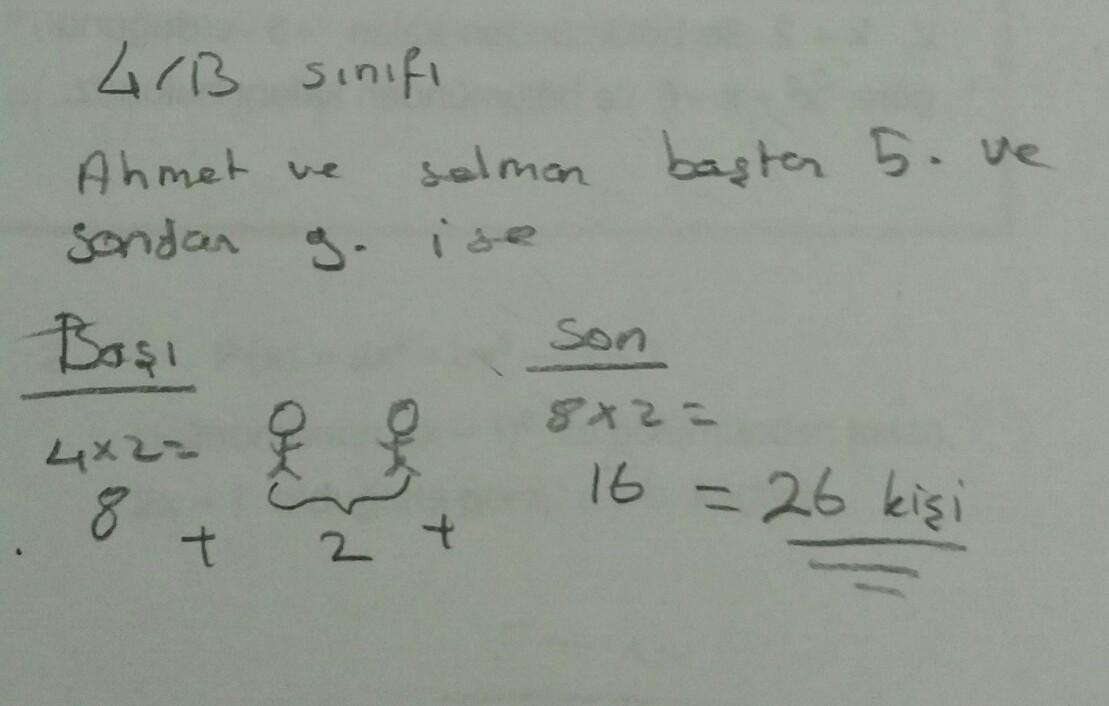 4/B sınıfı
Ahmet ve selman baştan 5. ve
sondan 9. ise
Başı Son
4x2= 8x2=
8 + 2 + 16 = 26 kişi